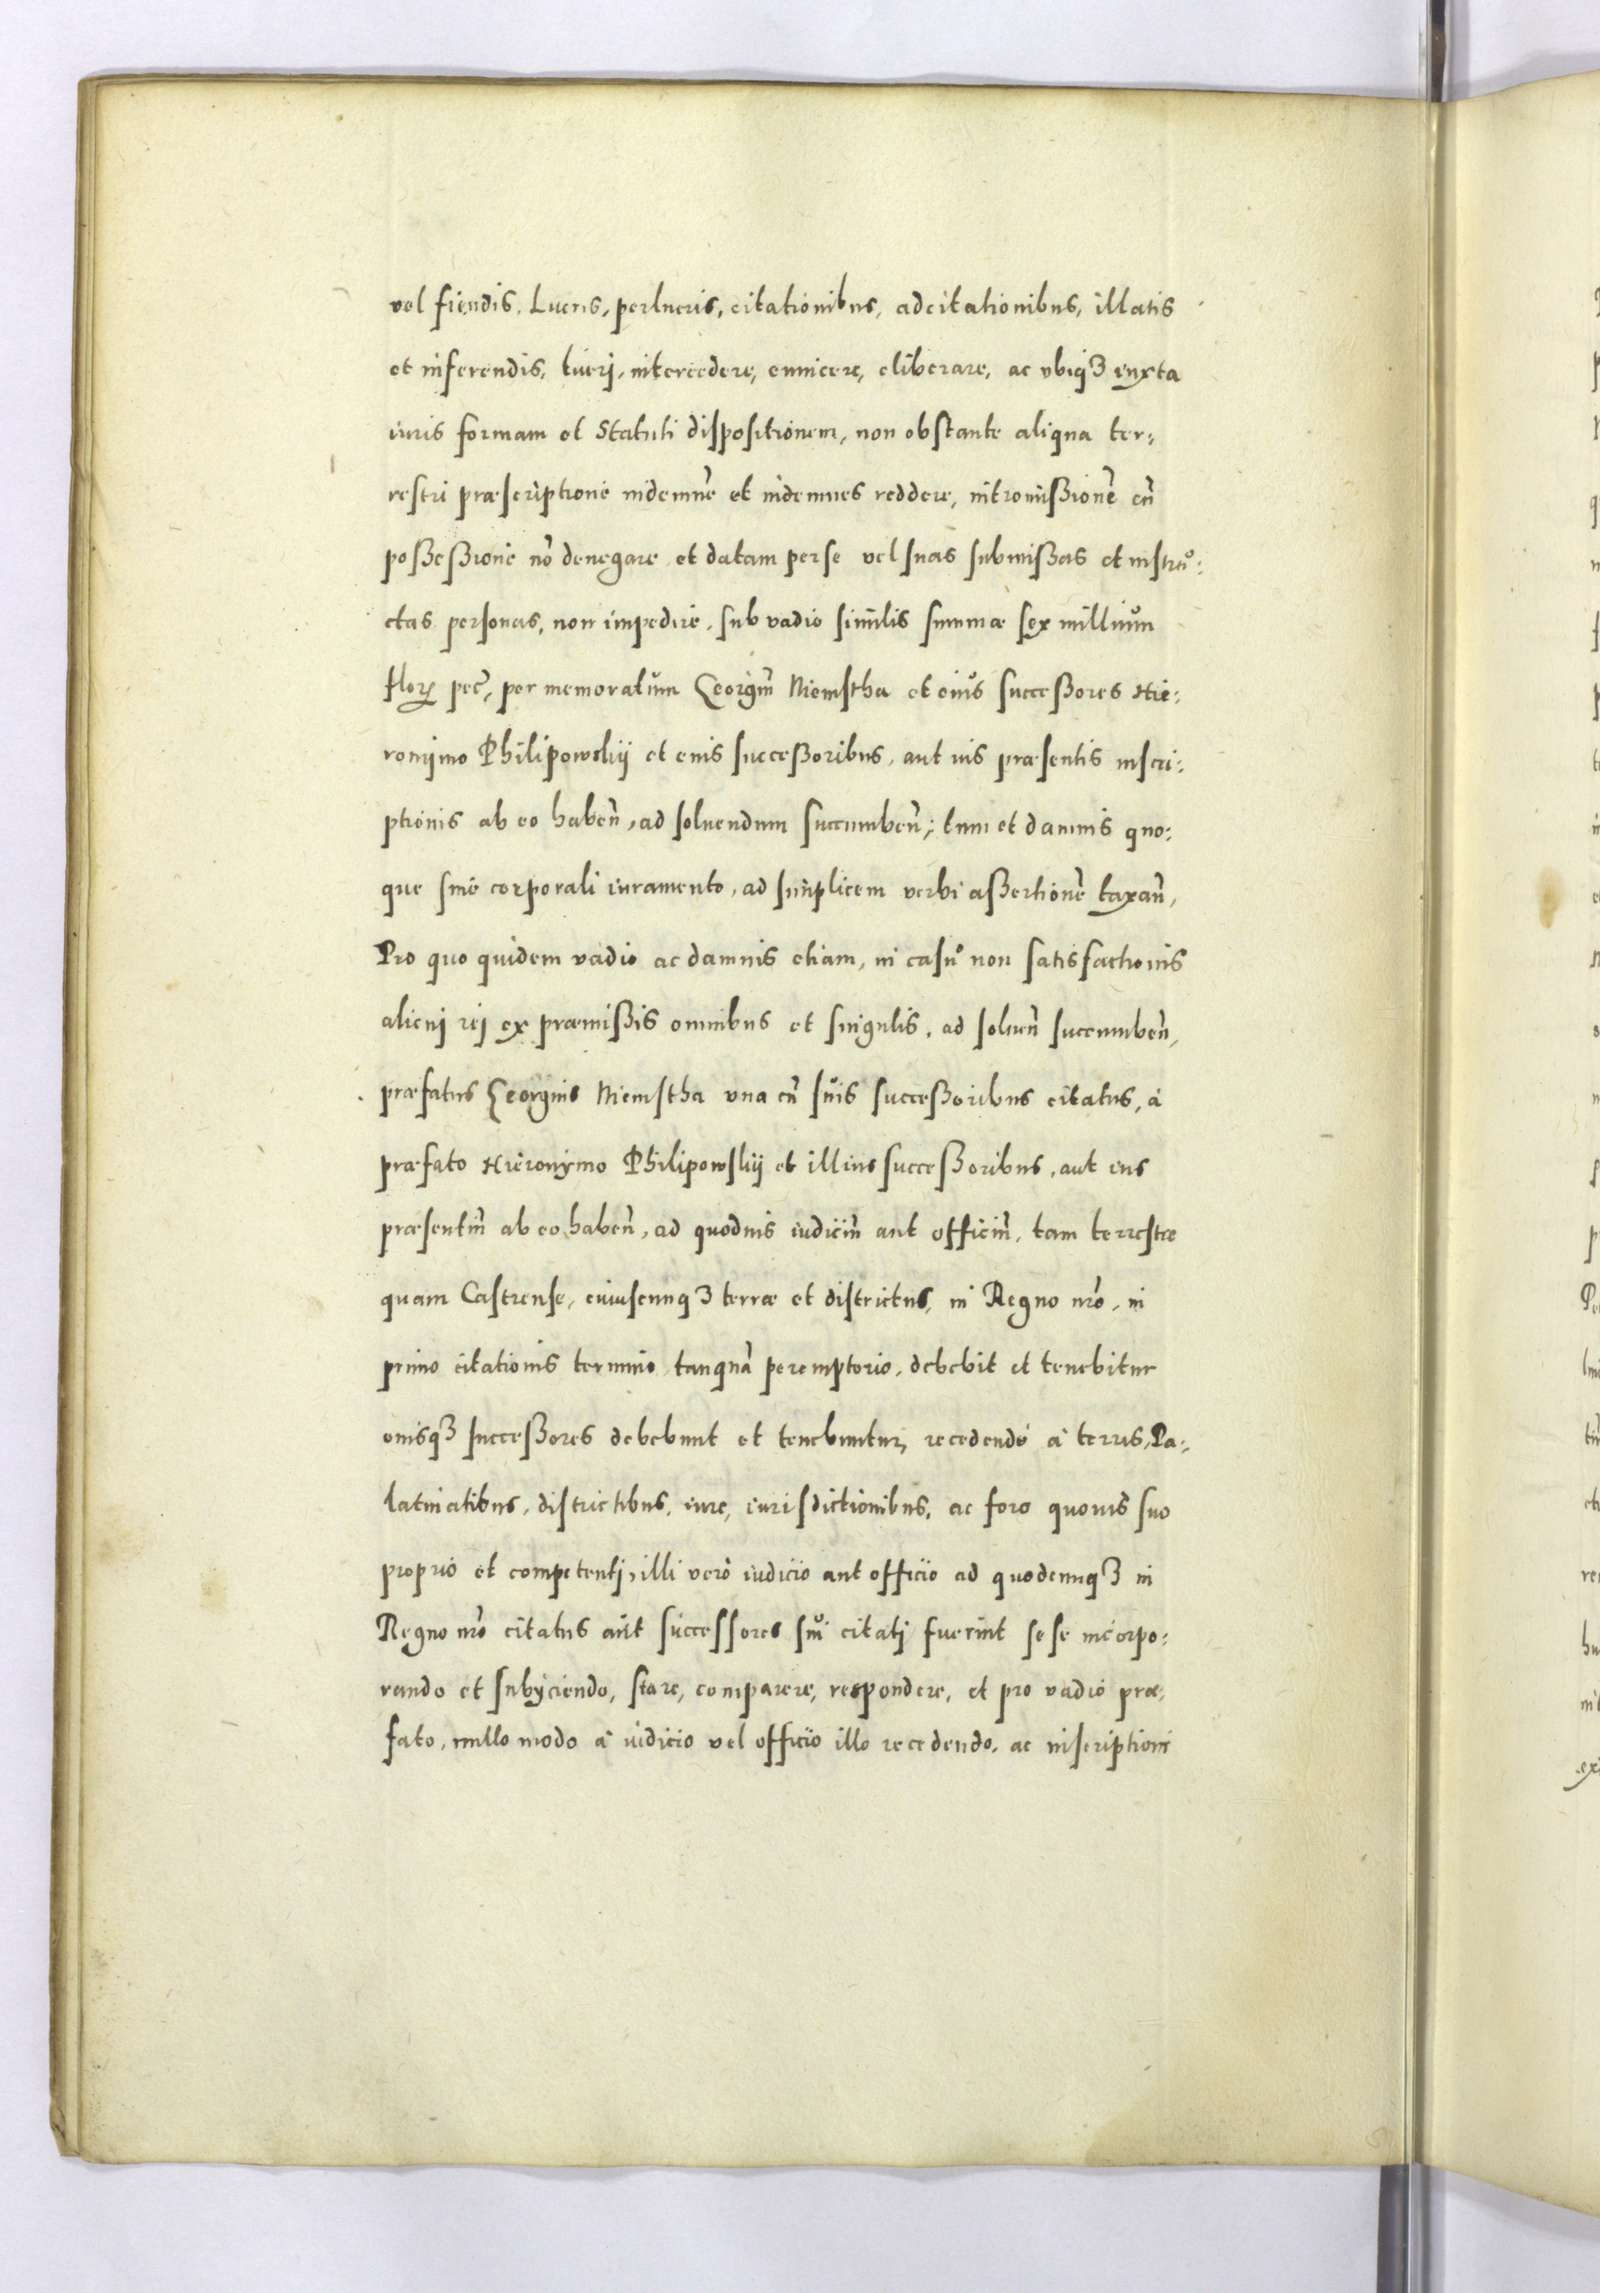 vel fiendis, Lucris, perlucris, citationibus, adcitationibus, illatis
et inferendis, tueri, intercedere, euincere, eliberare, ac vbiqꝫ iuxta
iuris formam et Statuti dispositionem, non obstante aliqua ter:
restri præscriptione indemnẽ et indemnes reddere, intromißionẽ cũ
poßeßione nõ denegare et datam per se vel suas submißas et instru:
ctas personas, non impedire, sub vadio similis summæ sex millium
floꝝ pec̃, per memoratum Georgiũ Niemstha et eius succeßores Hie:
ronimo Philipowskij et eius succeßoribus, aut ius præsentis inscri:
ptionis ab eo habeñ, ad soluendum succumbeñ; tum et damnis quo:
que sine corporali iuramento, ad simplicem verbi aßertionẽ taxañ,
Pro quo quidem vadio ac damnis etiam, in casu non satisfactionis
alicui rei ex præmißis omnibus et singulis, ad solueñ succumbeñ,
præfatus Georgius Niemstha vna cũ suis succeßoribus citatus, à
præfato Hieronymo Philipowskij et illius succeßoribus, aut ius
præsentiũ ab eo habeñ, ad quoduis iudiciũ aut officiũ, tam terrestre
quam Castrense, cuiuscunqꝫ terræ et districtus, in Regno nr̃o, in
primo citationis termino tanquã peremptorio, debebit et tenebitur
eiusqꝫ succeßores debebunt et tenebuntur, recedendo à terris, Pa:
latinatibus, districtibus, iure, iurisdictionibus, ac foro quouis suo
proprio et competenti, illi verò iudicio aut officio ad quodcunqꝫ in
Regno nr̃o citatus aut successores sui citati fuerint sese incorpo:
rando et subijciendo, stare, comparere, respondere, et pro vadio præ:
fato, nullo modo à iudicio vel officio illo recedendo, ac inscriptioni